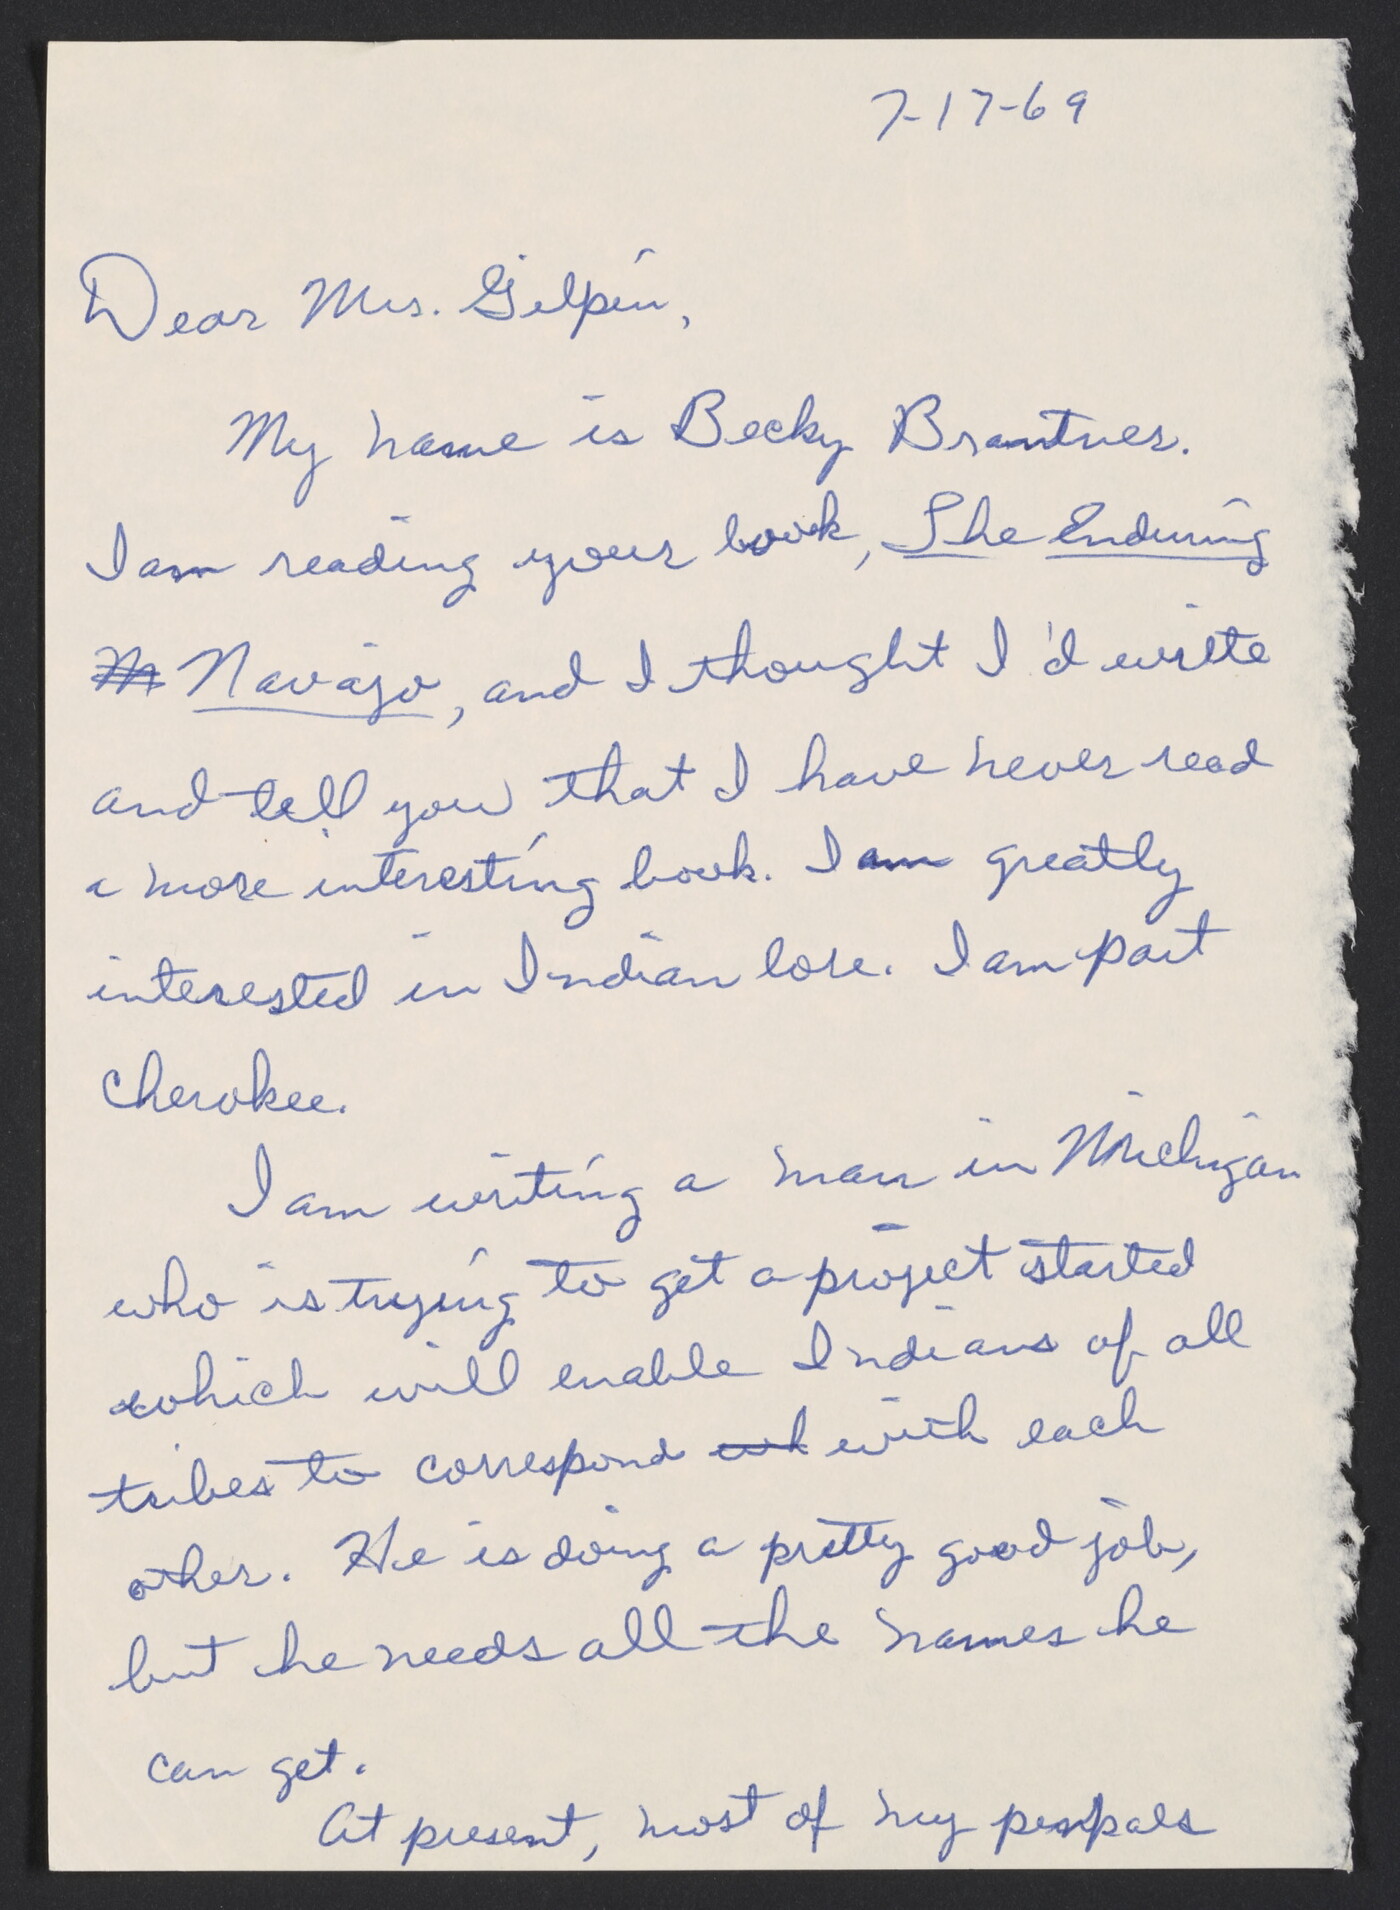 7-17-69
Dear Mrs. Gilpin,
My name is Becky Brantner.
I am reading your book, The Enduring
M Navajo, and I thought I'd write
and tell you that I have never read
a more interesting book. I am greatly
interested in Indian lore. I am part
Cherokee.
I am writing a man in Michigan
who is trying to get a project started
which will enable Indians of all
tribes to correspond with each
other. He is doing a pretty good job,
but he needs all the names he
can get.
At present, most of my penpals